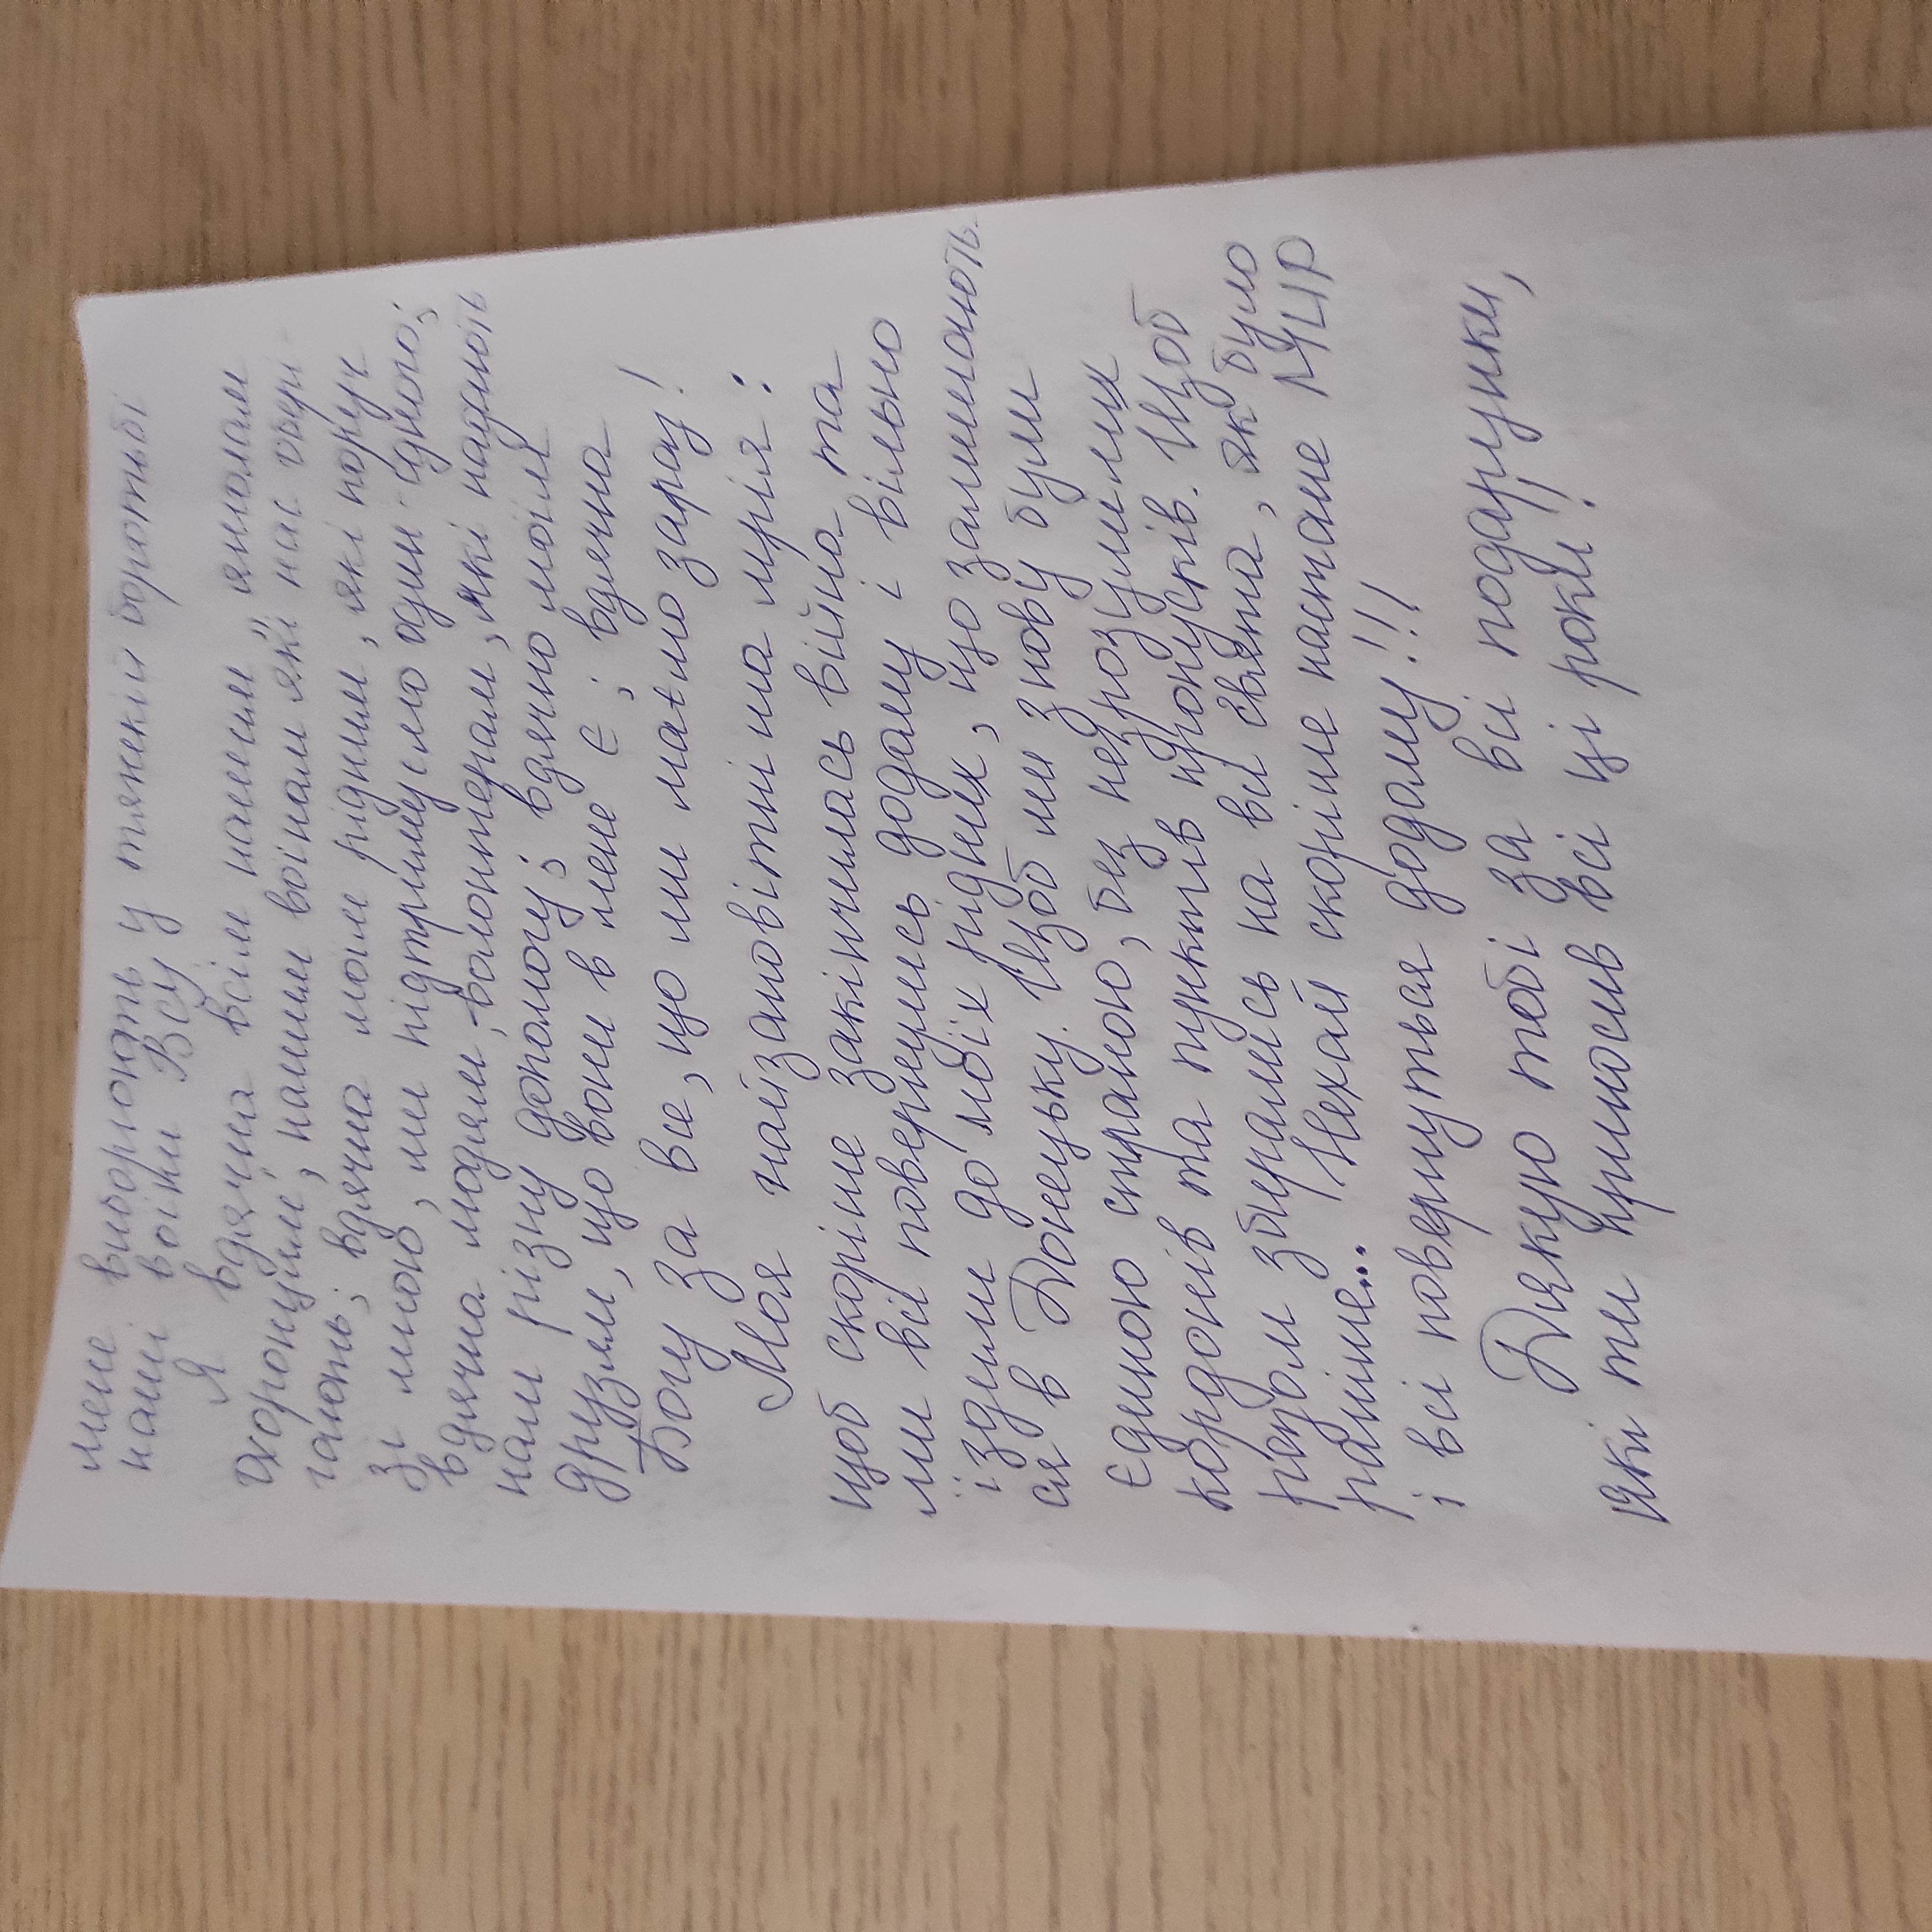 мене виборюють у тяжкій боротьбі
наші воїни ВСУ
Я вдячна всім нашим „янголам
охоронцям", нашим воїнам які нас обері-
гають; вдячна моїм рідним, які поруч
зі мною, ми підтримуємо один одного;
вдячна людям, волонтерам, які надають
нам різну допомогу; вдячно моїм
друзям, що вони в мене є; вдячна
Богу за все, що ми маємо зараз!
Моя найзаповітніша мрія:
щоб скоріше закінчилась війна та
ми всі повернулись додому і вільно
їздили до моїх рідних, що залишають-
ся в Донецьку. Щоб ми знову були
єдиною страною, без незрозумілих
кордонів та пунктів пропусків. Щоб
разом збирались на всі свята, як було
раніше... Нехай скоріше настане МИР
і всі повернуться додому!!!
Дякую тобі за всі подарунки,
які ти приносив всі ці роки!